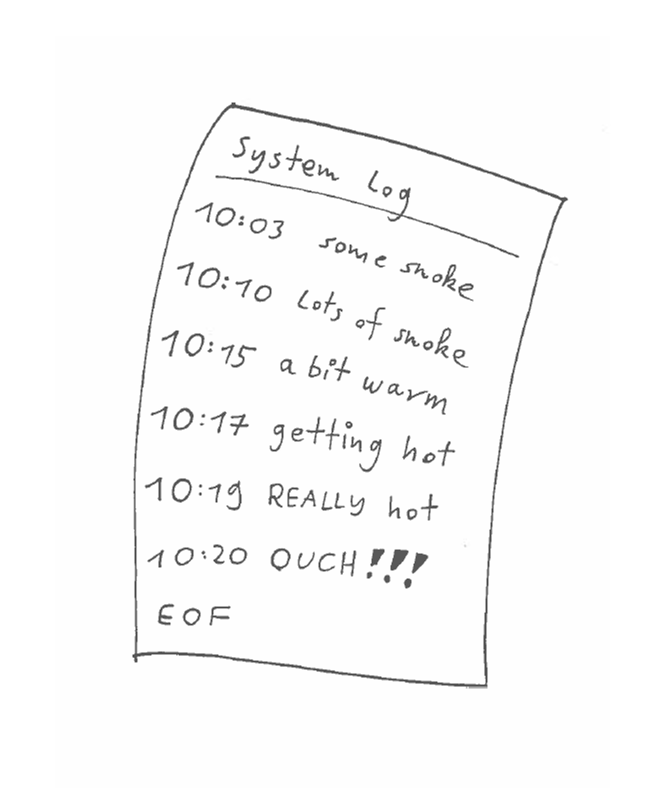 System Log
10:03 some smoke
10:10 Lots of smoke
10:15 a bit warm
10:17 getting hot
10:19 REALLY hot
10:20 OUCH!!!
EOF